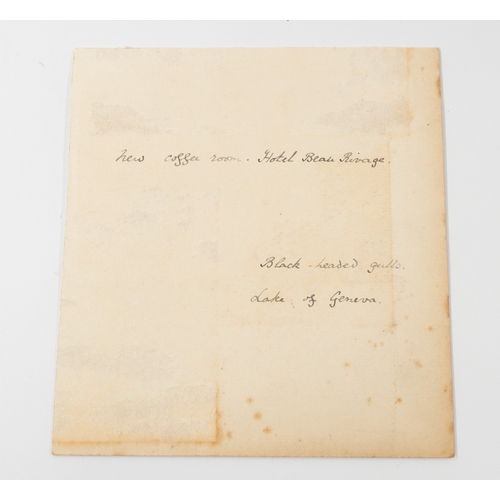 New coffee room. Hotel Beau Rivage.
Black-headed gulls.
Lake of Geneva.